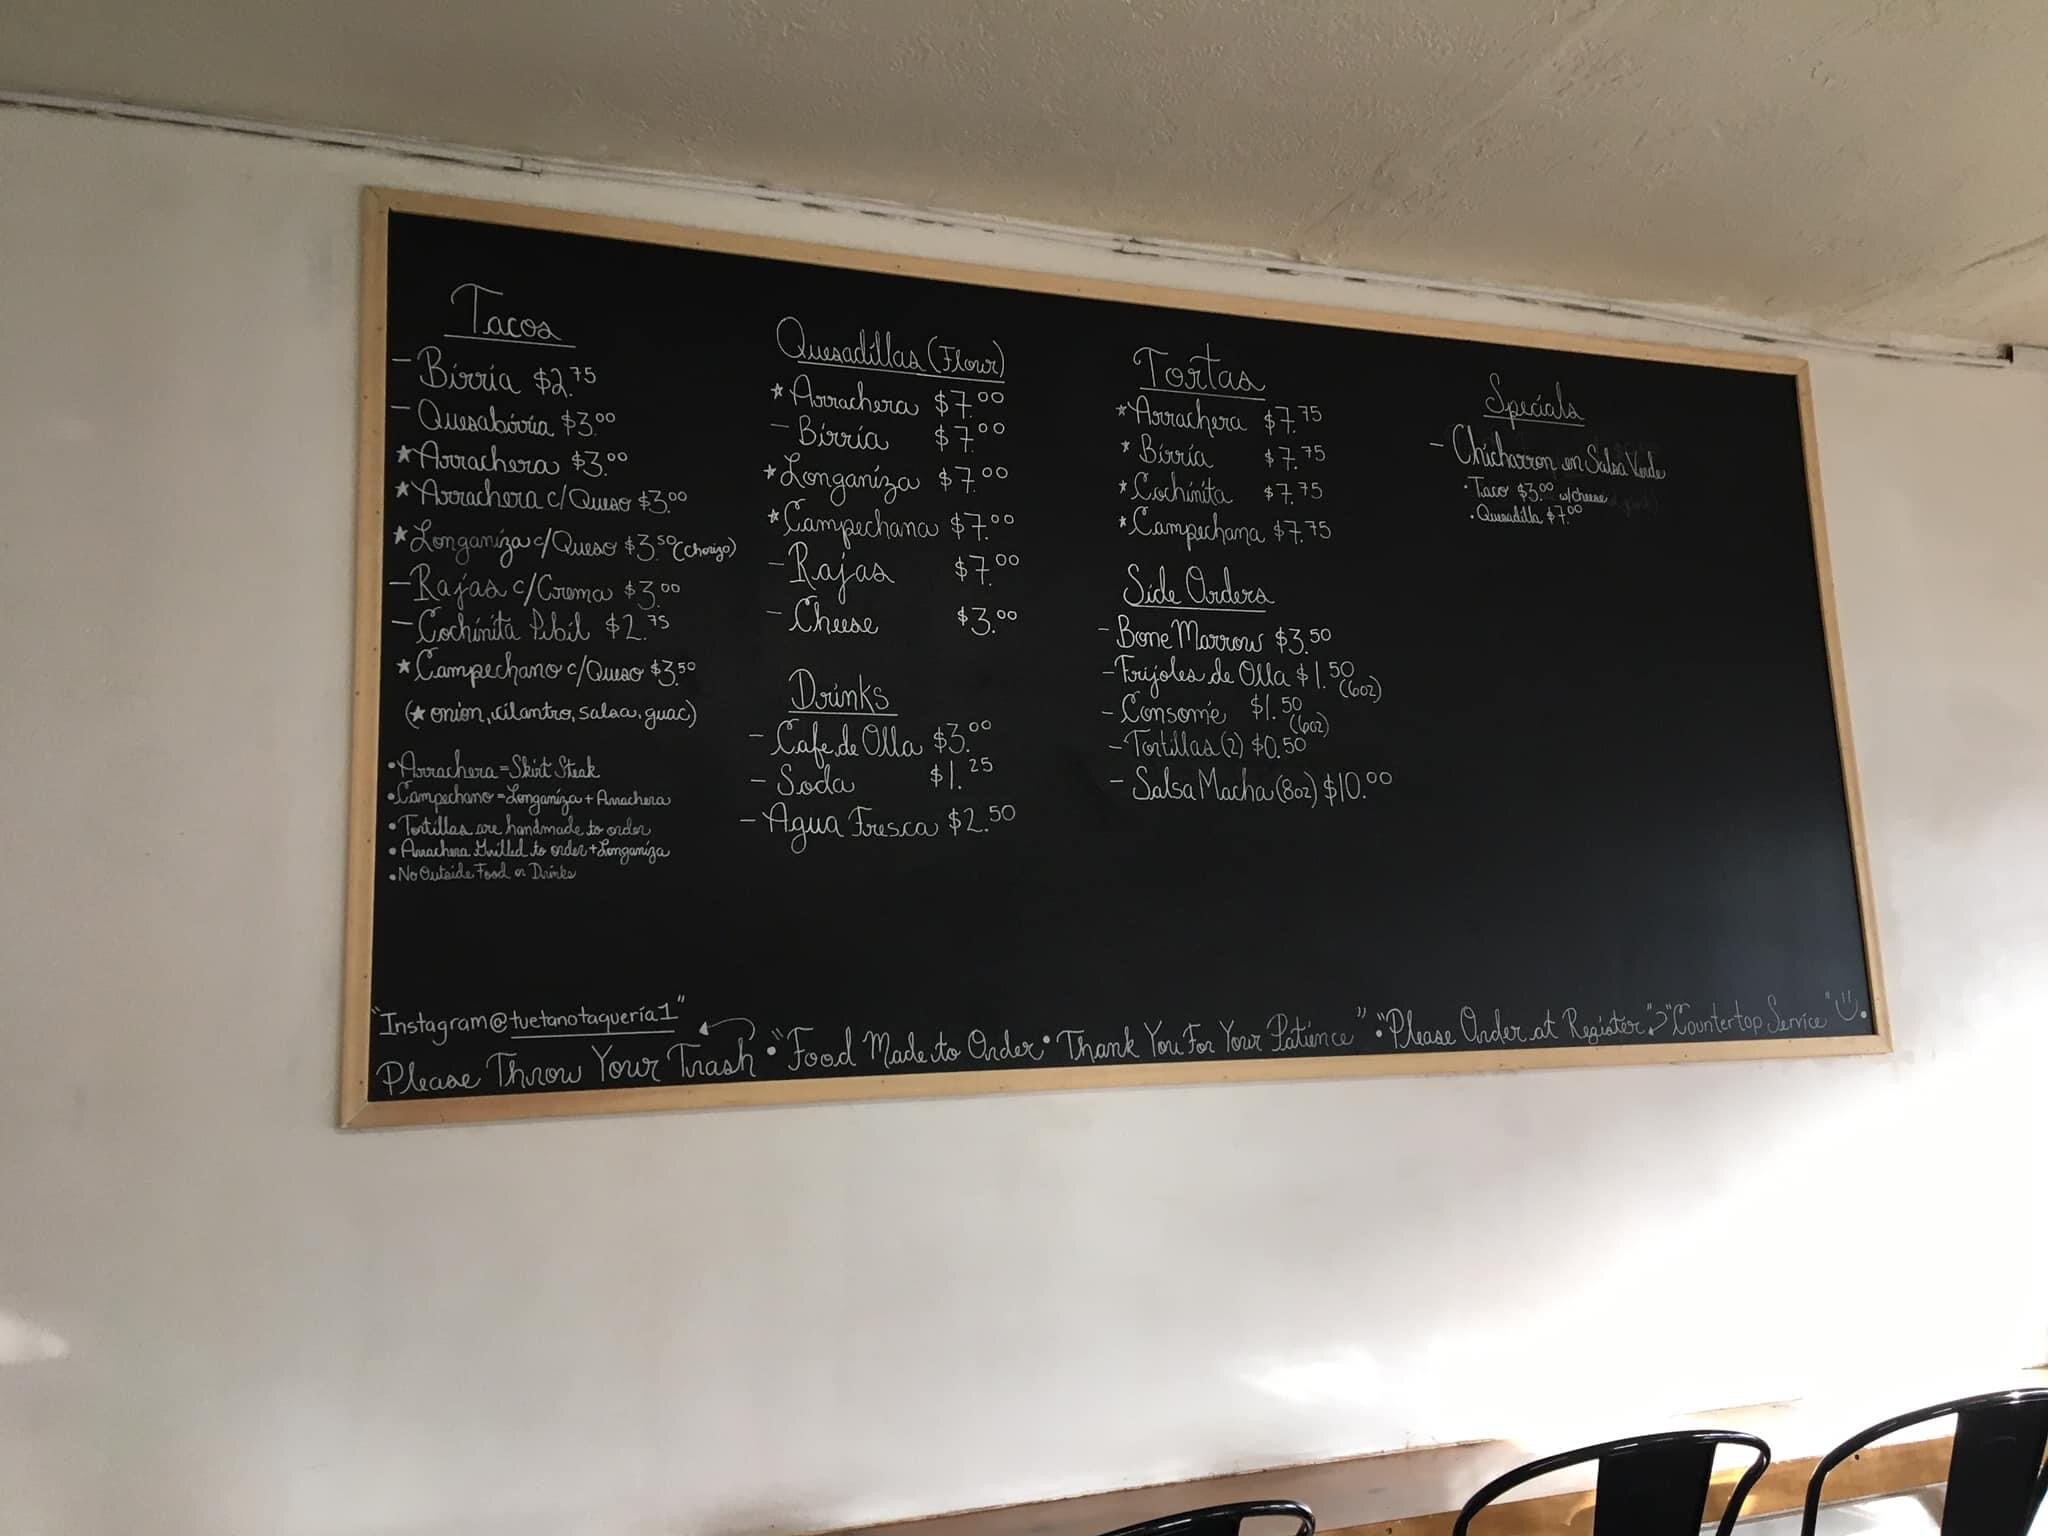 Tacos
- Birria $2.75
- Quesabirria $3.00
★ Arrachera $3.00
★ Arrachera c/Queso $3.00
★ Longaniza c/Queso $3.50 (Chorizo)
- Rajas c/Crema $3.00
- Cochinita Pibil $2.75
★ Campechano c/Queso $3.50
(★ onion, cilantro, salsa, guac)
• Arrachera = Skirt Steak
• Campechano = Longaniza + Arrachera
• Tortillas are handmade to order
• Arrachera Grilled to order + Longaniza
• No Outside Food or Drinks
Quesadillas (Flour)
★ Arrachera $7.00
- Birria $7.00
★ Longaniza $7.00
★ Campechana $7.00
- Rajas $7.00
- Cheese $3.00
Drinks
- Cafe de Olla $3.00
- Soda $1.25
- Agua Fresca $2.50
Tortas
★ Arrachera $7.75
★ Birria $7.75
★ Cochinita $7.75
★ Campechana $7.75
Side Orders
- Bone Marrow $3.50
- Frijoles de Olla $1.50 (6oz)
- Consomé $1.50 (6oz)
- Tortillas (2) $0.50
- Salsa Macha (8oz) $10.00
Specials
- Chicharron en Salsa Verde
• Taco $3.00 w/cheese
• Quesadilla $7.00
"Instagram@tuetanotaqueria1"
Please Throw Your Trash • "Food Made to Order • Thank You For Your Patience" • "Please Order at Register" "Countertop Service"